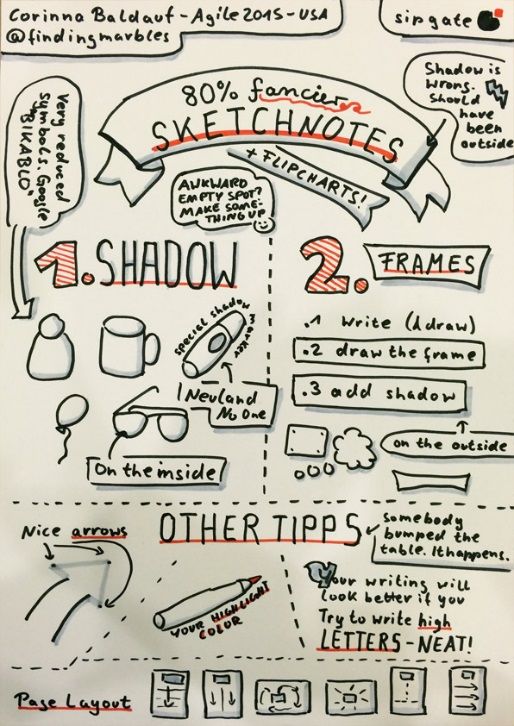 Corinna Baldauf - Agile 2015 - USA
@findingmarbles
sipgate
Shadow is
wrong.
Should
have
been
outside
Very reduced
symbols. Google
"BIKABLO"
80% fancier
SKETCHNOTES
+ FLIPCHARTS!
AWKWARD
EMPTY SPOT?
MAKE SOME-
THING UP
1. SHADOW
special shadow
marker
Neuland
No One
On the inside
2. FRAMES
.1 Write (& draw)
.2 draw the frame
.3 add shadow
on the outside
OTHER TIPPS
somebody
bumped the
table. It happens.
Nice arrows
YOUR HIGHLIGHT
COLOR
Your writing will
look better if you
Try to write high
LETTERS - NEAT!
Page Layout